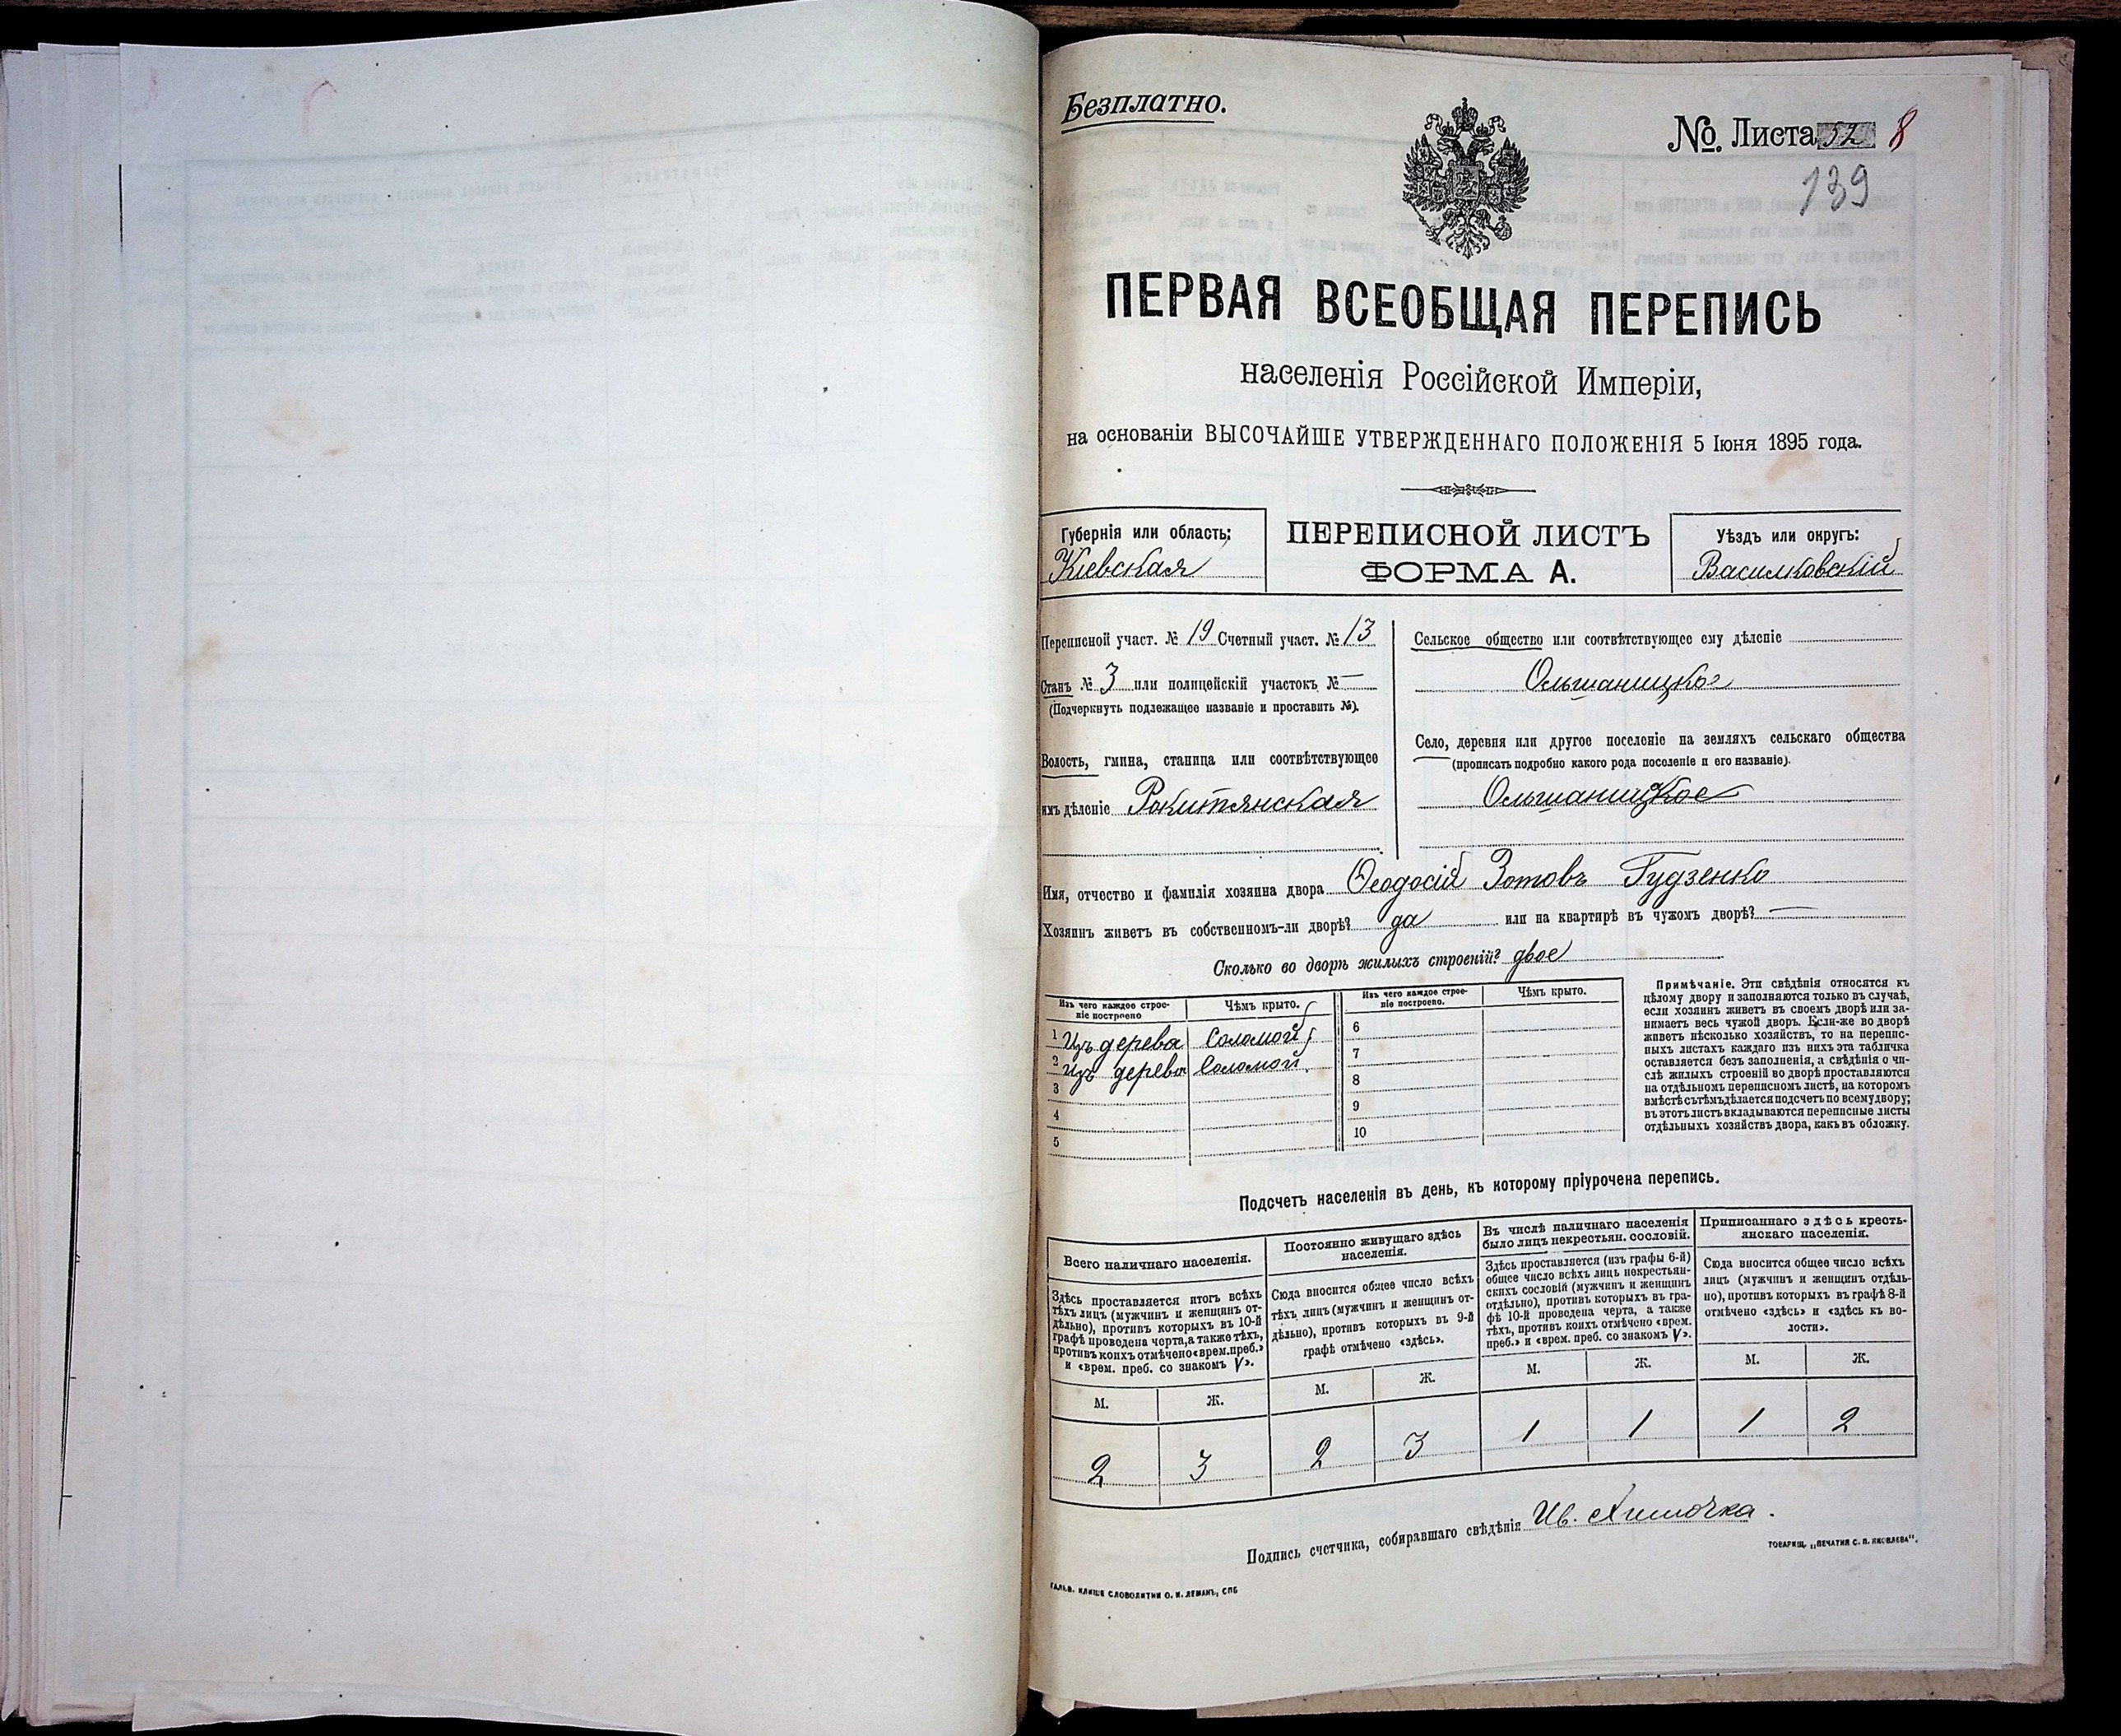 Безплатно.
№. Листа 52 8
139
ПЕРВАЯ ВСЕОБЩАЯ ПЕРЕПИСЬ
населенія Россійской Имперіи,
на основаніи ВЫСОЧАЙШЕ УТВЕРЖДЕННАГО ПОЛОЖЕНІЯ 5 Іюня 1895 года.
Губернія или область:
Кіевская
ПЕРЕПИСНОЙ ЛИСТЪ
ФОРМА А.
Уѣздъ или округъ:
Василковскій
Переписной участ. № 19 Счетный участ. № 13
Станъ № 3 или полицейскій участокъ № —
(Подчеркнуть подлежащее названіе и проставить №).
Волость, гмина, станица или соотвѣтствующее
имъ дѣленіе Рокитянская
Сельское общество или соотвѣтствующее ему дѣленіе
Ольшаницкое
Село, деревня или другое поселеніе на земляхъ сельскаго общества
(прописать подробно какого рода поселеніе и его названіе).
Ольшаницкое
Имя, отчество и фамилія хозяина двора Ѳеодосій Зотовъ Гудзенко
Хозяинъ живетъ въ собственномъ-ли дворѣ? да или на квартирѣ въ чужомъ дворѣ? —
Сколько во дворѣ жилыхъ строеній? двое
Изъ чего каждое строе-
ніе построено
Чѣмъ крыто.
1 Изъ дерева Соломой
2 изъ дерева Соломой
3
4
5
Изъ чего каждое строе-
ніе построено.
Чѣмъ крыто.
6
7
8
9
10
Примѣчаніе. Эти свѣдѣнія относятся къ
цѣлому двору и заполняются только въ случаѣ,
если хозяинъ живетъ въ своемъ дворѣ или за-
нимаетъ весь чужой дворъ. Если-же во дворѣ
живетъ нѣсколько хозяйствъ, то на перепис-
ныхъ листахъ каждаго изъ нихъ эта табличка
оставляется безъ заполненія, а свѣдѣнія о чи-
слѣ жилыхъ строеній во дворѣ проставляются
на отдѣльномъ переписномъ листѣ, на которомъ
вмѣстѣ съ тѣмъ дѣлается подсчетъ по всему двору;
въ этотъ листъ вкладываются переписные листы
отдѣльныхъ хозяйствъ двора, какъ въ обложку.
Подсчетъ населенія въ день, къ которому пріурочена перепись.
Всего наличнаго населенія.
Здѣсь проставляется итогъ всѣхъ
тѣхъ лицъ (мужчинъ и женщинъ от-
дѣльно), противъ которыхъ въ 10-й
графѣ проведена черта, а также тѣхъ,
противъ коихъ отмѣчено «врем. преб.»
и «врем. преб. со знакомъ V».
М. Ж.
2 3
Постоянно живущаго здѣсь
населенія.
Сюда вносится общее число всѣхъ
тѣхъ лицъ (мужчинъ и женщинъ от-
дѣльно), противъ которыхъ въ 9-й
графѣ отмѣчено «здѣсь».
М. Ж.
2 3
Въ числѣ наличнаго населенія
было лицъ некрестьян. сословій.
Здѣсь проставляется (изъ графы 6-й)
общее число всѣхъ лицъ некрестьян-
скихъ сословій (мужчинъ и женщинъ
отдѣльно), противъ которыхъ въ гра-
фѣ 10-й проведена черта, а также
тѣхъ, противъ коихъ отмѣчено «врем.
преб.» и «врем. преб. со знакомъ V».
М. Ж.
1 1
Приписаннаго здѣсь кресть-
янскаго населенія.
Сюда вносится общее число всѣхъ
лицъ (мужчинъ и женщинъ отдѣль-
но), противъ которыхъ въ графѣ 8-й
отмѣчено «здѣсь» и «здѣсь къ во-
лости».
М. Ж.
1 2
Подпись счетчика, собиравшаго свѣдѣнія Ив.
ТОВАРИЩ. „ПЕЧАТНЯ С. П. ЯКОВЛЕВА".
ГАЛЬВ. КЛИШЕ СЛОВОЛИТНИ О. И. ЛЕМАНЪ, СПБ